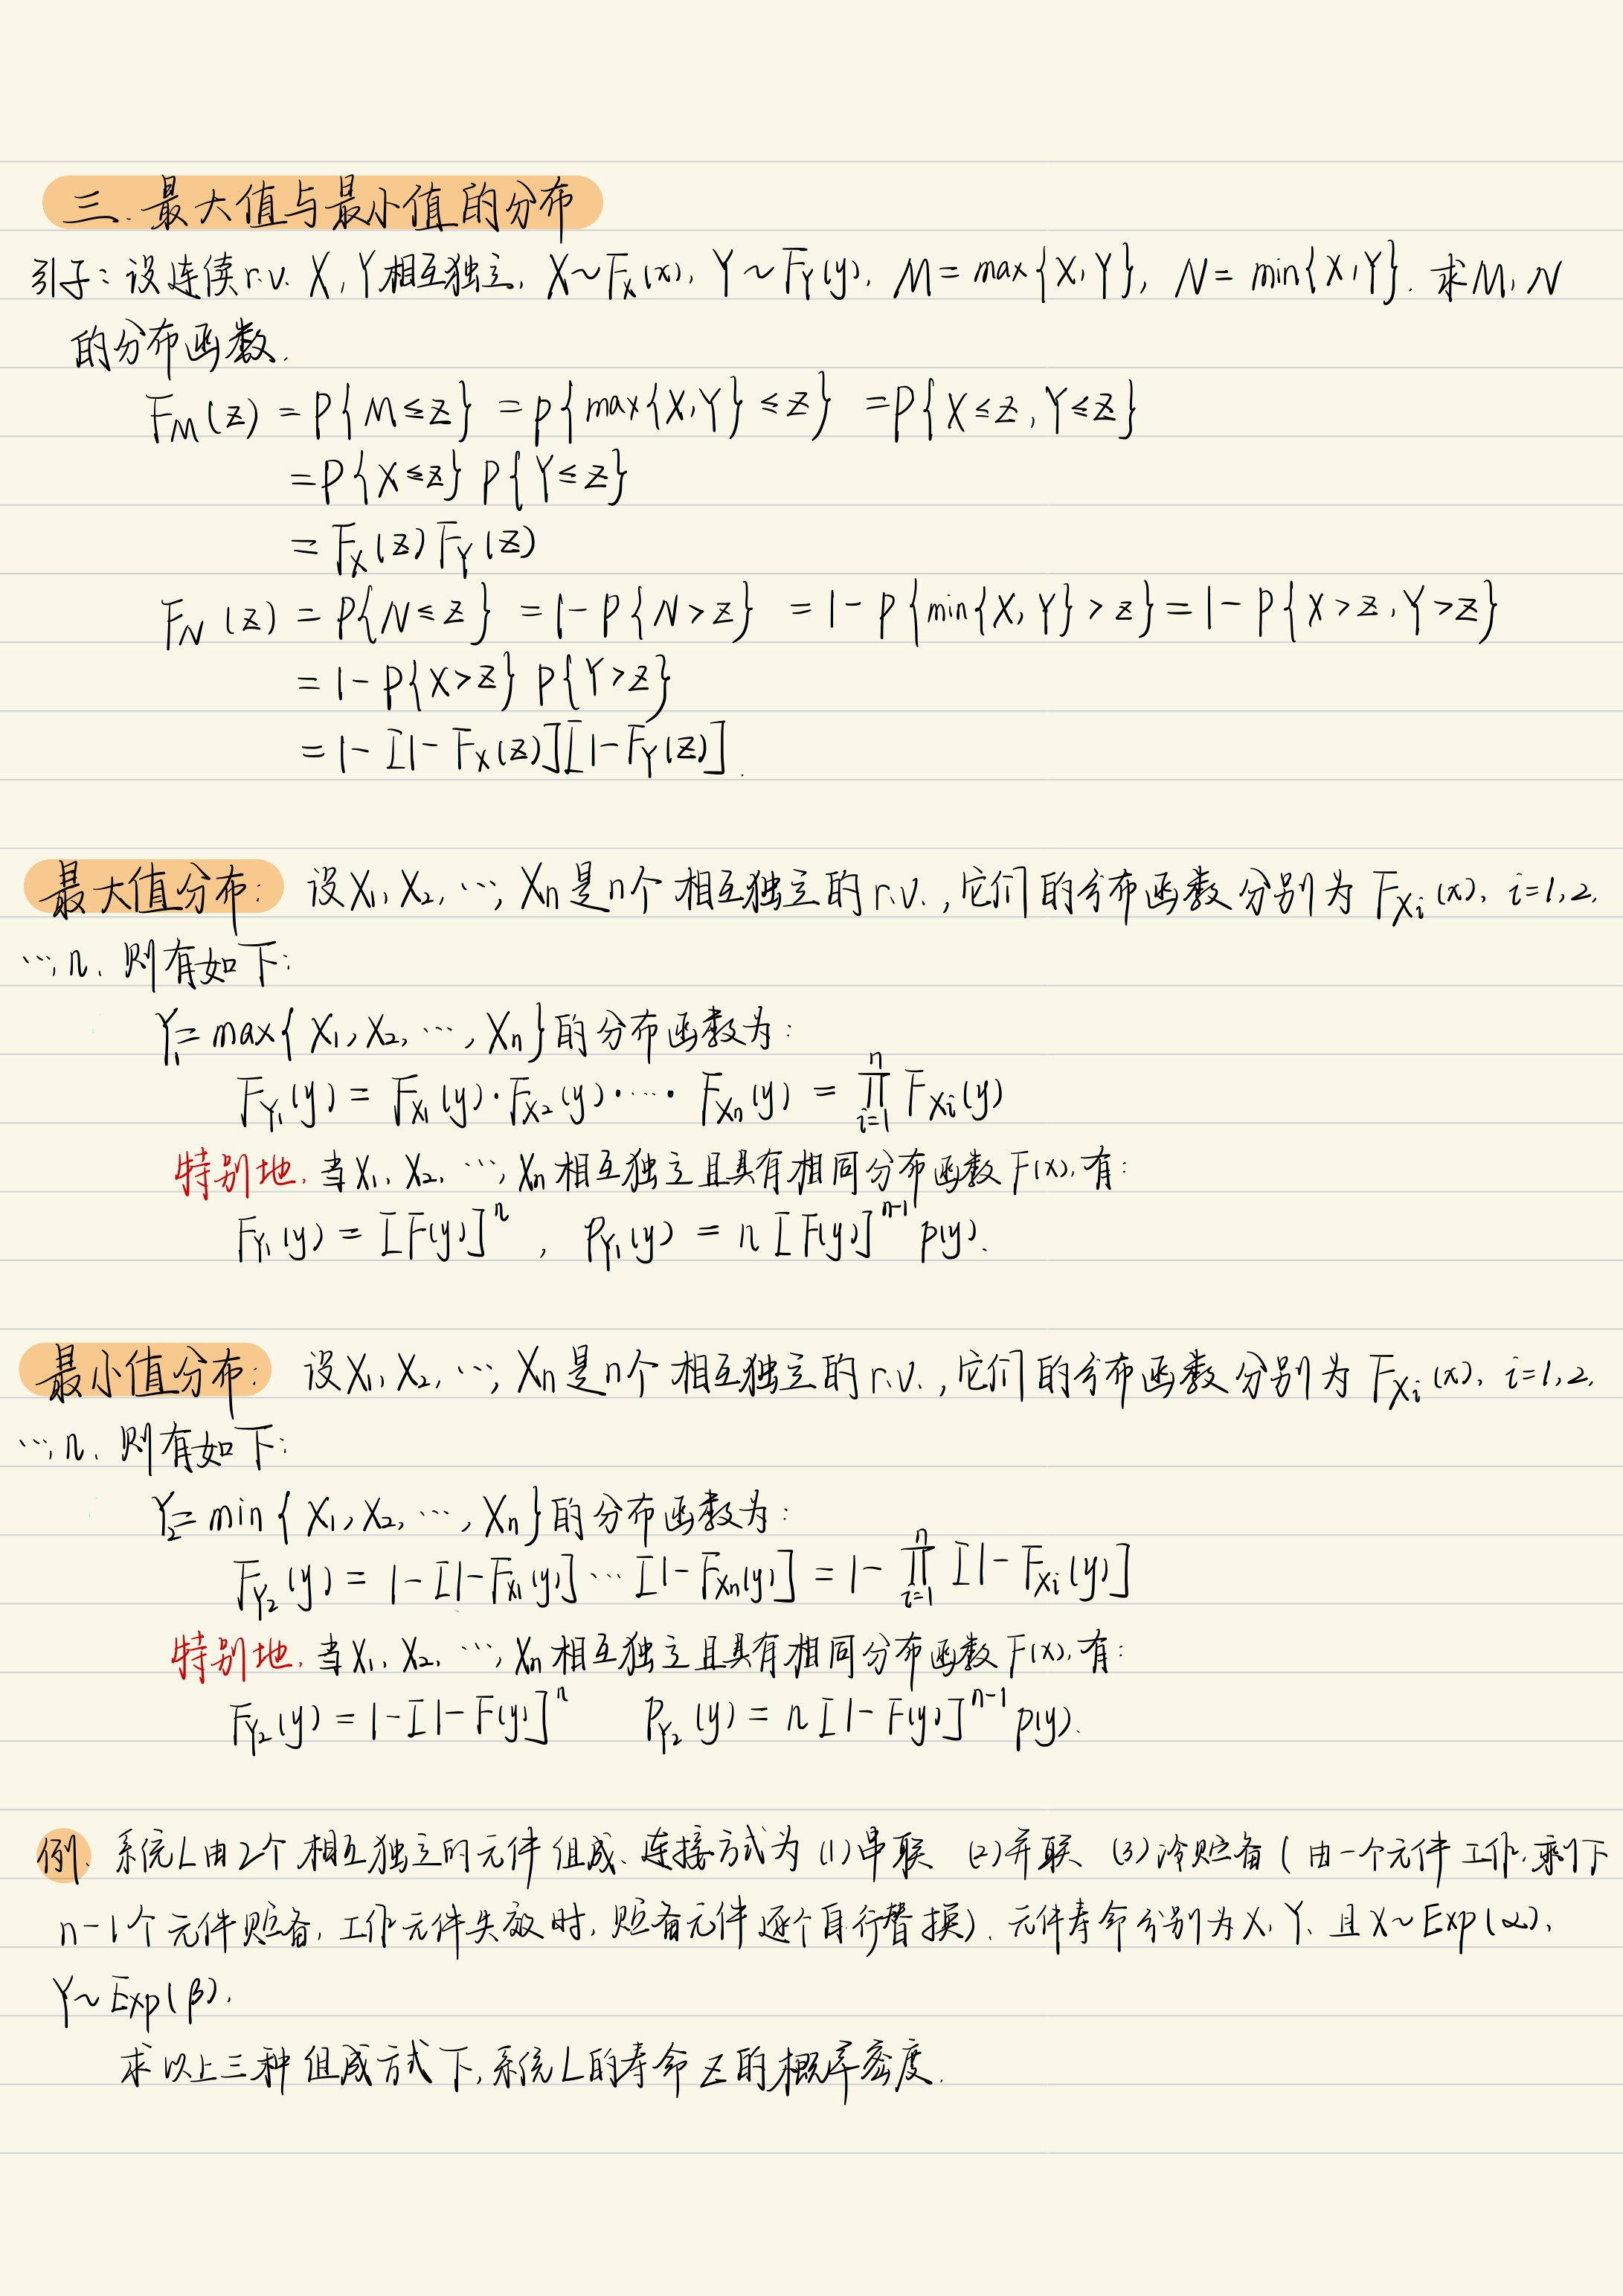 三.最大值与最小值的分布
引子:设连续r.v. X,Y相互独立, X~F_X(x), Y~F_Y(y), M=max{X,Y}, N=min{X,Y}. 求M,N
的分布函数.
F_M(z) = P{M≤z} = P{max{X,Y}≤z} = P{X≤z,Y≤z}
= P{X≤z} P{Y≤z}
= F_X(z) F_Y(z)
F_N(z) = P{N≤z} = 1-P{N>z} = 1-P{min{X,Y}>z} = 1-P{X>z,Y>z}
= 1-P{X>z} P{Y>z}
= 1-[1-F_X(z)][1-F_Y(z)].
最大值分布: 设X₁,X₂,…,Xn是n个相互独立的r.v.,它们的分布函数分别为 F_{Xi}(x), i=1,2,
…,n. 则有如下:
Y₁=max{X₁,X₂,…,Xn}的分布函数为:
F_{Y₁}(y) = F_{X₁}(y)·F_{X₂}(y)·…·F_{Xn}(y) = ∏_{i=1}^{n} F_{Xi}(y)
特别地,当X₁,X₂,…,Xn相互独立且具有相同分布函数F(x),有:
F_{Y₁}(y) = [F(y)]^n , P_{Y₁}(y) = n[F(y)]^{n-1} p(y).
最小值分布: 设X₁,X₂,…,Xn是n个相互独立的r.v.,它们的分布函数分别为 F_{Xi}(x), i=1,2,
…,n. 则有如下:
Y₂=min{X₁,X₂,…,Xn}的分布函数为:
F_{Y₂}(y) = 1-[1-F_{X₁}(y)]…[1-F_{Xn}(y)] = 1-∏_{i=1}^{n} [1-F_{Xi}(y)]
特别地,当X₁,X₂,…,Xn相互独立且具有相同分布函数F(x),有:
F_{Y₂}(y) = 1-[1-F(y)]^n P_{Y₂}(y) = n[1-F(y)]^{n-1} p(y).
例. 系统L由2个相互独立的元件组成.连接方式为 (1)串联 (2)并联 (3)冷贮备(由一个元件工作,剩下
n-1个元件贮备,工作元件失效时,贮备元件逐个自行替换). 元件寿命分别为X,Y. 且X~Exp(α),
Y~Exp(β).
求以上三种组成方式下,系统L的寿命Z的概率密度.